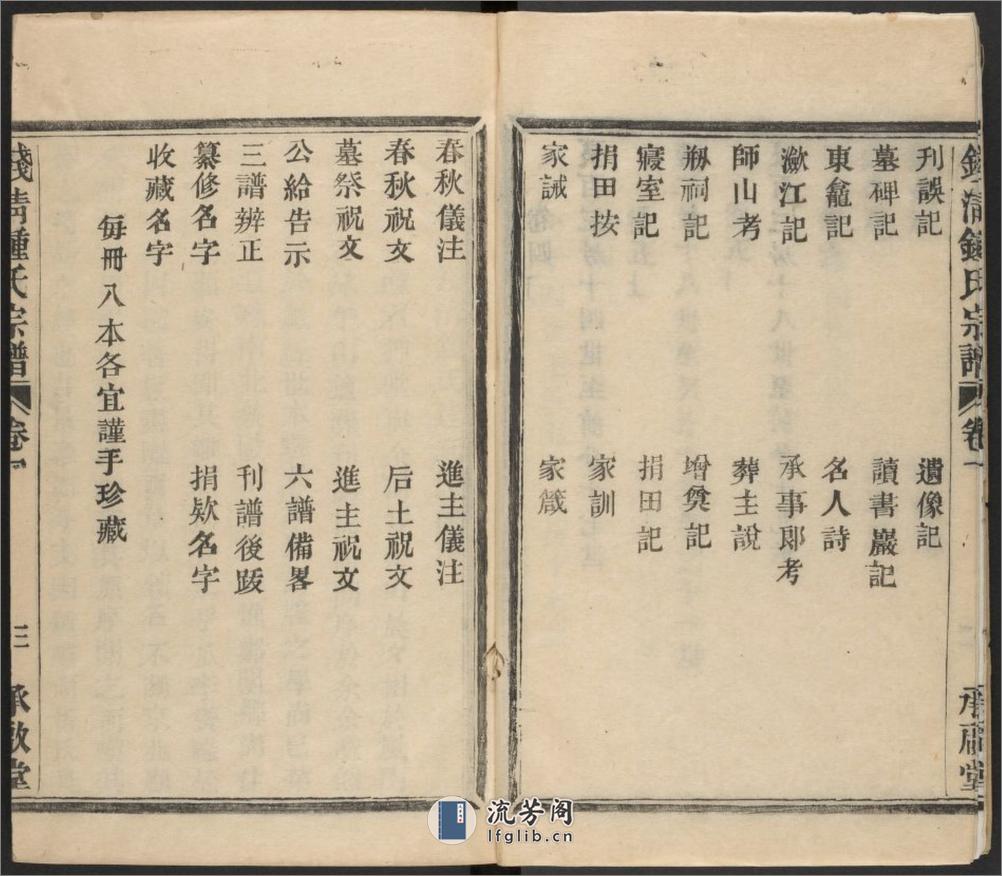 刊誤記 遺像記
墓碑記 讀書巖記
東龕記 名人詩
漱江記 承事郎考
師山考 葬主說
剏祠記 增奠記
寢室記 捐田記
捐田按 家訓
家誡 家箴
春秋儀注 進主儀注
春秋祝文 后土祝文
墓祭祝文 進主祝文
公給告示 六譜備畧
三譜辨正 刊譜後跋
纂修名字 捐欵名字
收藏名字
每冊八本各宜謹手珍藏
氏宗譜 卷一
三
流芳阁
lfglib.cn